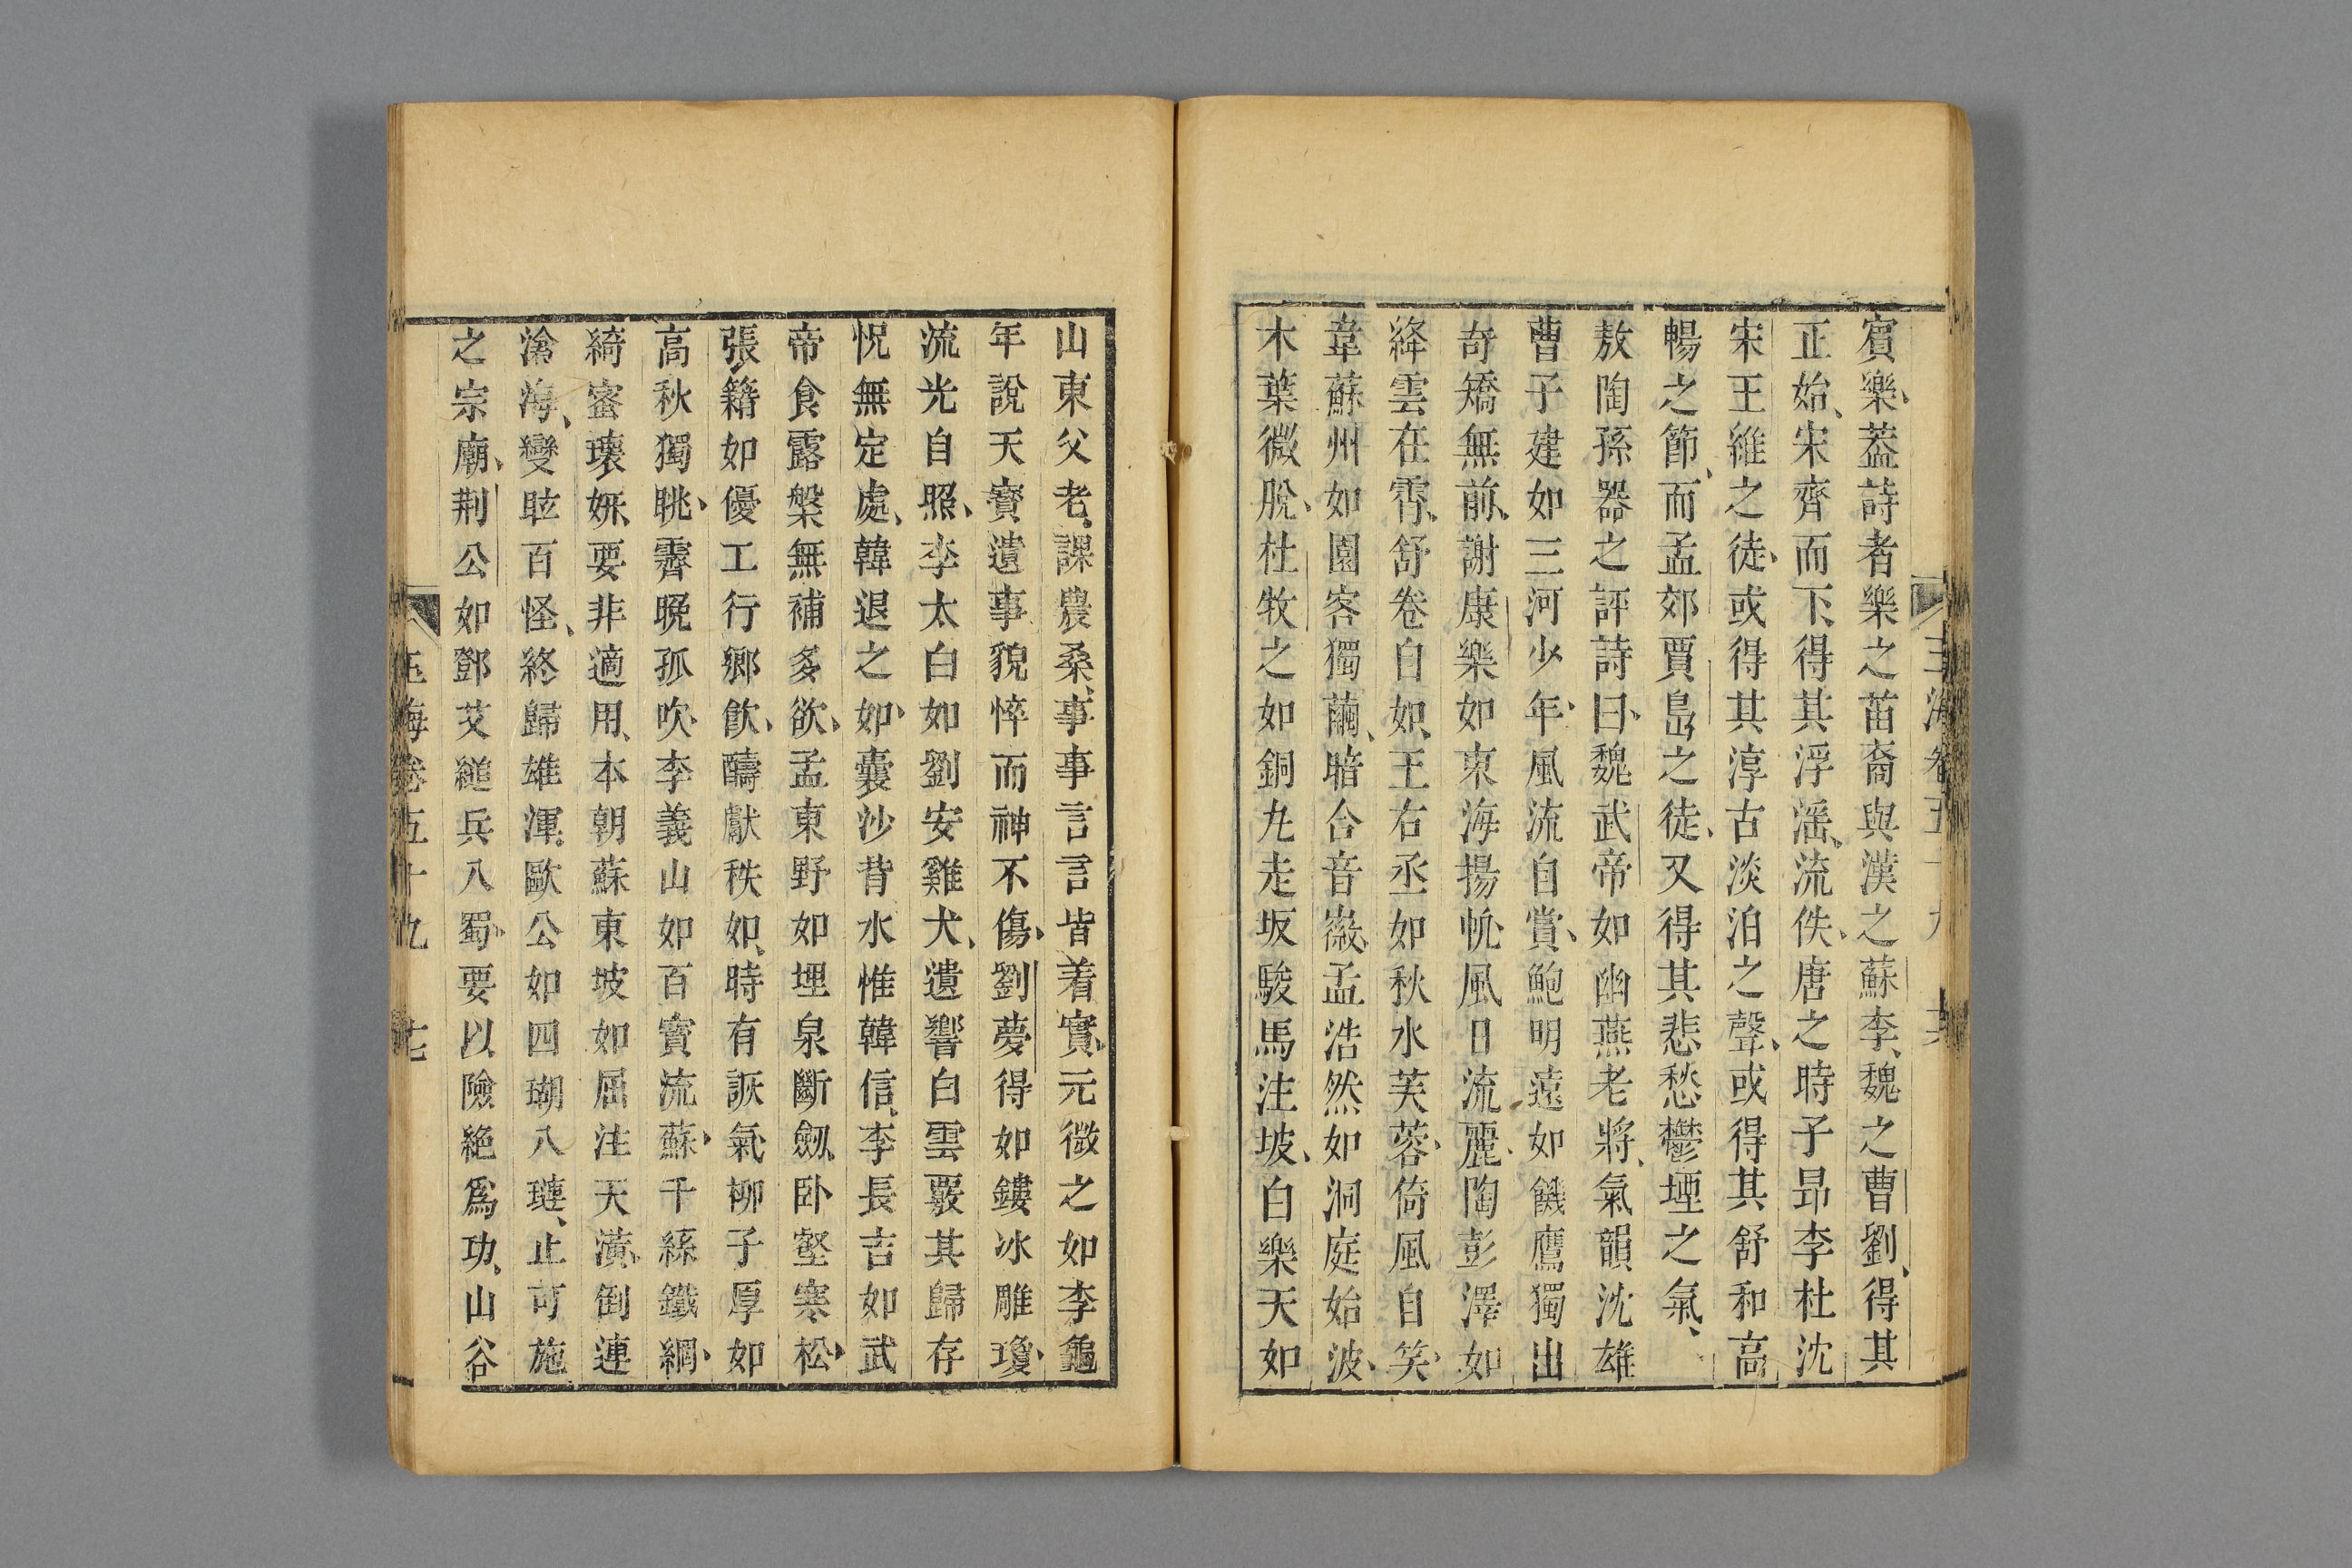 賓樂蓋詩者樂之苗裔與漢之蘇李魏之曹劉得其
正始宋齊而下得其浮滛流佚唐之時子昂李杜沈
宋王維之徒或得其淳古淡泊之聲或得其舒和高
暢之節而孟郊賈島之徒又得其悲愁鬱堙之氣
敖陶孫器之評詩曰魏武帝如幽燕老將氣韻沈雄
曹子建如三河少年風流自賞鮑明遠如饑鷹獨出
奇矯無前謝康樂如東海揚帆風日流麗陶彭澤如
絳雲在霄舒卷自如王右丞如秋水芙蓉倚風自笑
韋蘇州如園客獨繭暗合音徽孟浩然如洞庭始波
木葉微脫杜牧之如銅丸走坂駿馬注坡白樂天如
山東父老課農桑事事言言皆着實元微之如李龜
年說天寶遺事貌悴而神不傷劉夢得如鏤冰雕瓊
流光自照李太白如劉安雞犬遺響白雲覈其歸存
怳無定處韓退之如囊沙背水惟韓信李長吉如武
帝食露槃無補多欲孟東野如埋泉斷劒臥壑寒松
張籍如優工行鄉飲醻獻秩如時有詼氣柳子厚如
高秋獨眺霽晚孤吹李義山如百寶流蘇千絲鐵網
綺密瓌妍要非適用本朝蘇東坡如屈注天潢倒連
滄海變眩百怪終歸雄渾歐公如四瑚八璉止可施
之宗廟荆公如鄧艾縋兵入蜀要以險絕爲功山谷
玉海卷五十九 七